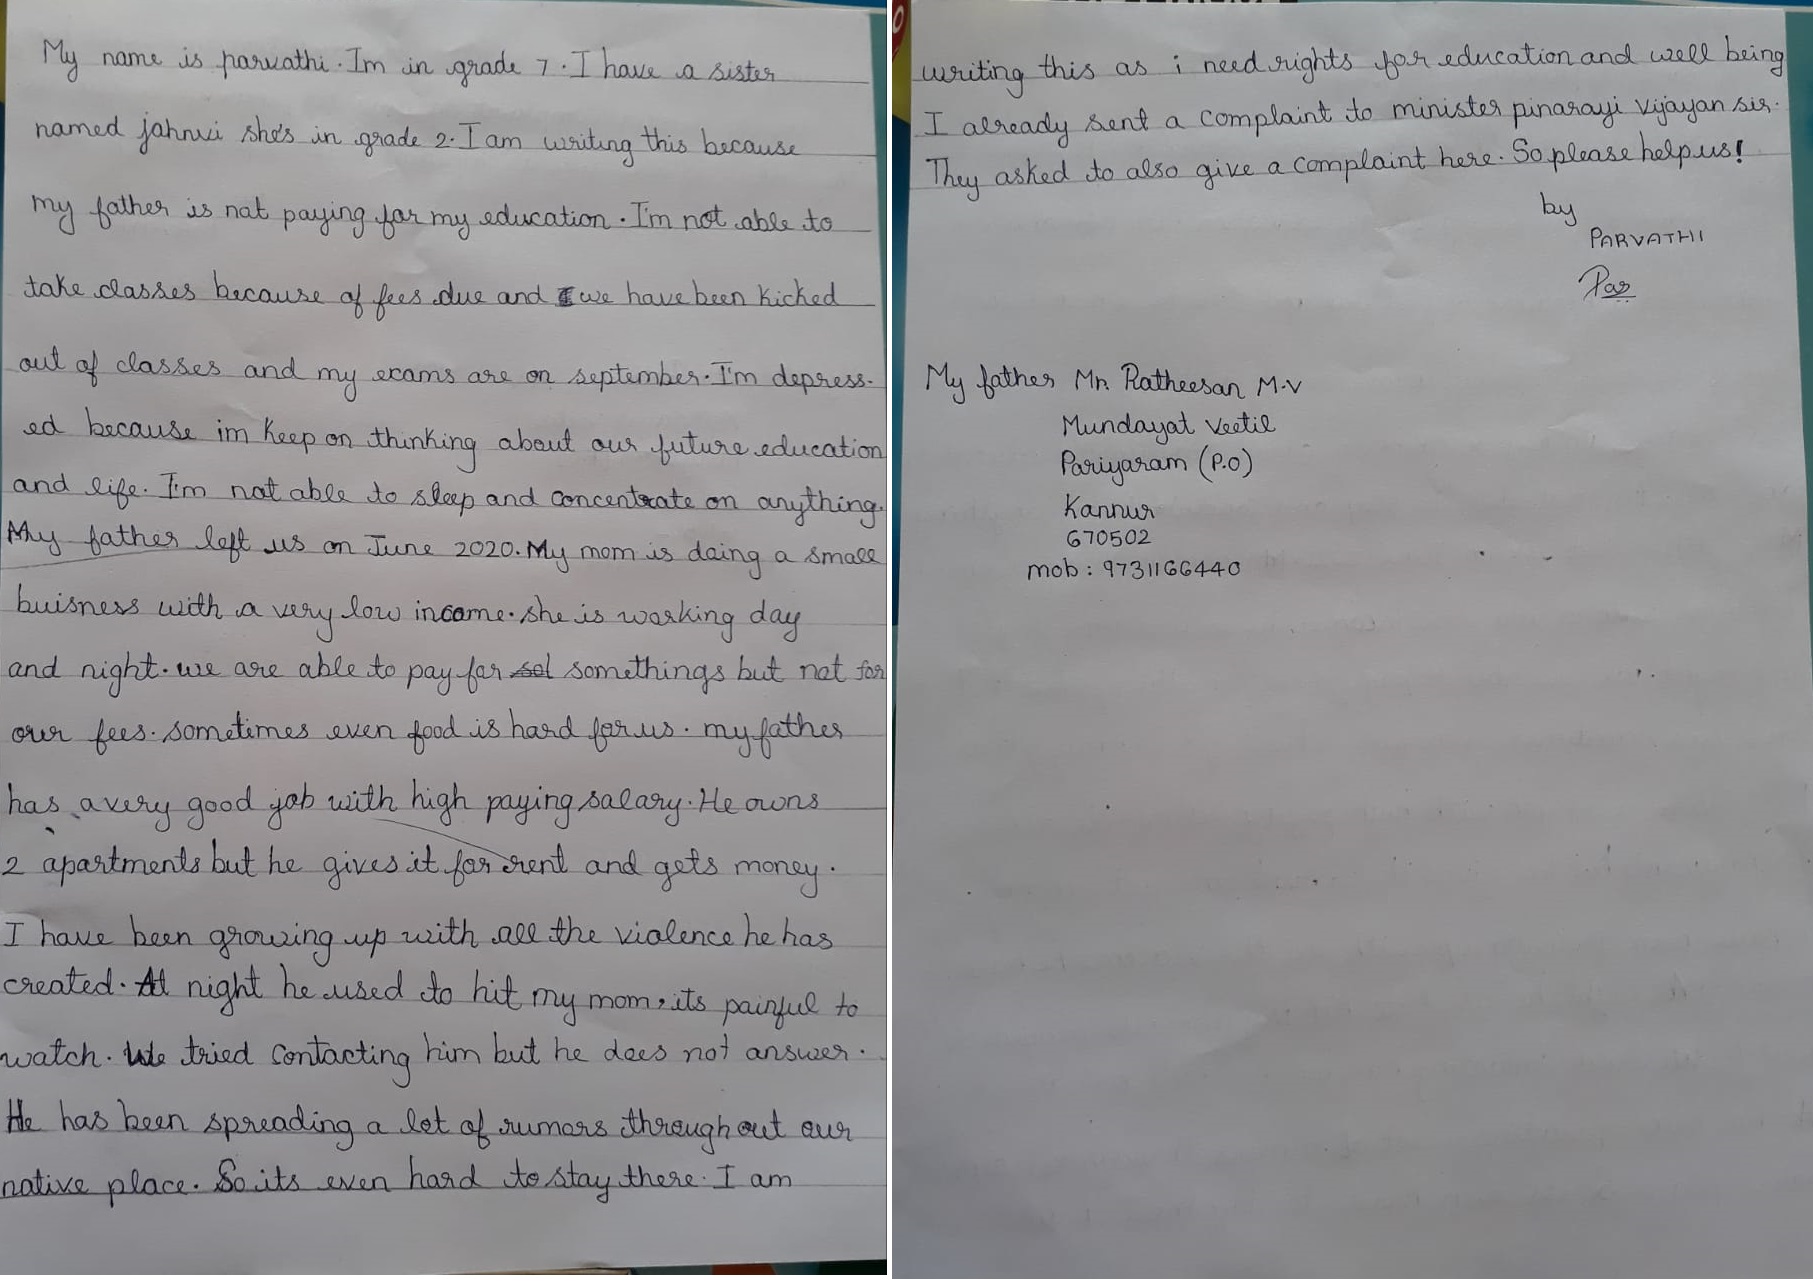 My name is parvathi. Im in grade 7. I have a sister
named jahnvi she's in grade 2. I am writing this because
my father is not paying for my education. I'm not able to
take classes because of fees due and we have been kicked
out of classes and my exams are on september. I'm depress-
ed because im keep on thinking about our future education
and life. I'm not able to sleep and concentrate on anything.
My father left us on June 2020. My mom is doing a small
buisness with a very low income. she is working day
and night. we are able to pay for somethings but not for
our fees. sometimes even food is hard for us. my father
has a very good job with high paying salary. He owns
2 apartments but he gives it for rent and gets money.
I have been growing up with all the violence he has
created. At night he used to hit my mom, its painful to
watch. We tried contacting him but he does not answer.
He has been spreading a lot of rumors throughout our
native place. So its even hard to stay there. I am
writing this as i need rights for education and well being
I already sent a complaint to minister pinarayi vijayan sir.
They asked to also give a complaint here. So please help us!
by
PARVATHI
Par
My father Mr. Ratheesan M.V
Mundayat Veetil
Pariyaram (P.O)
Kannur
670502
mob : 9731166440